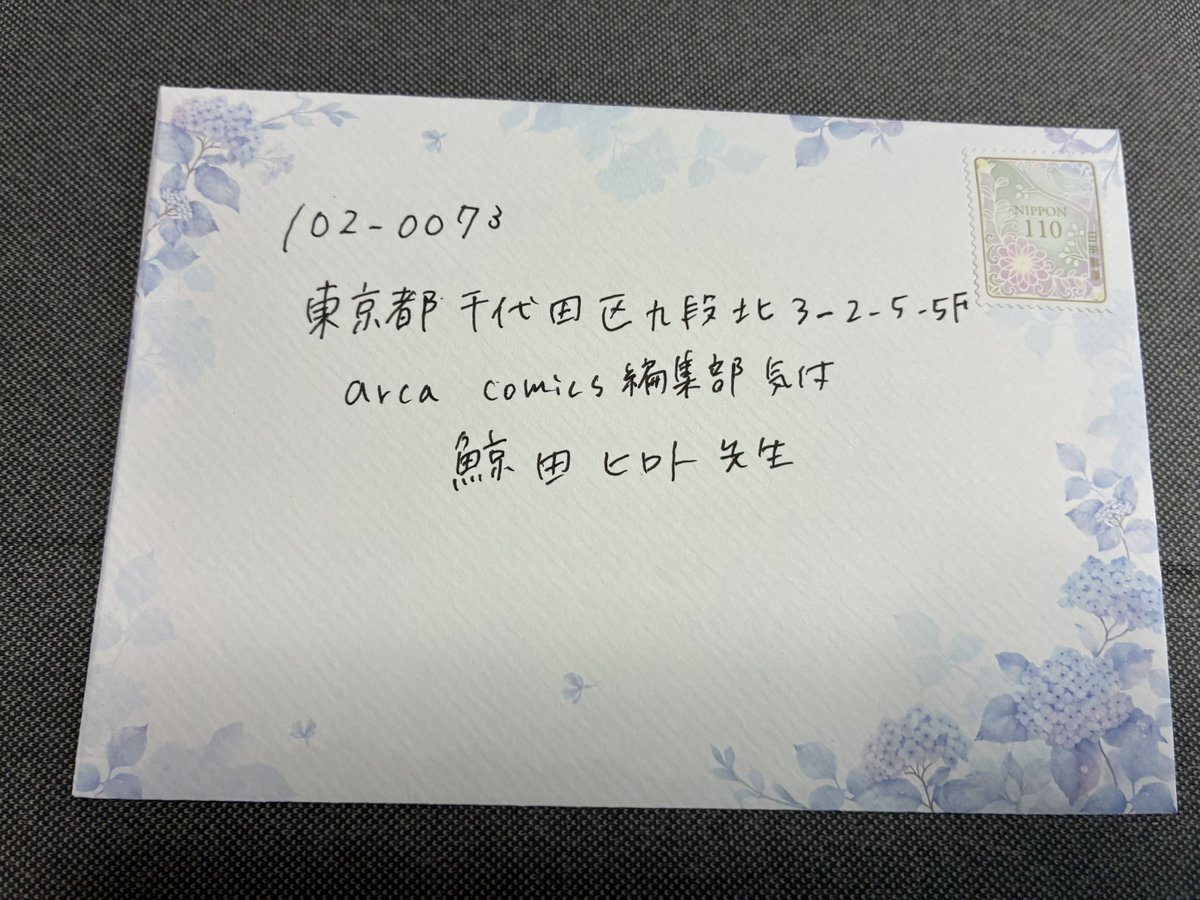 102-0073
NIPPON
110
日本郵便
東京都千代田区九段北3-2-5-5F
arca comics編集部気付
鯨田ヒロト先生